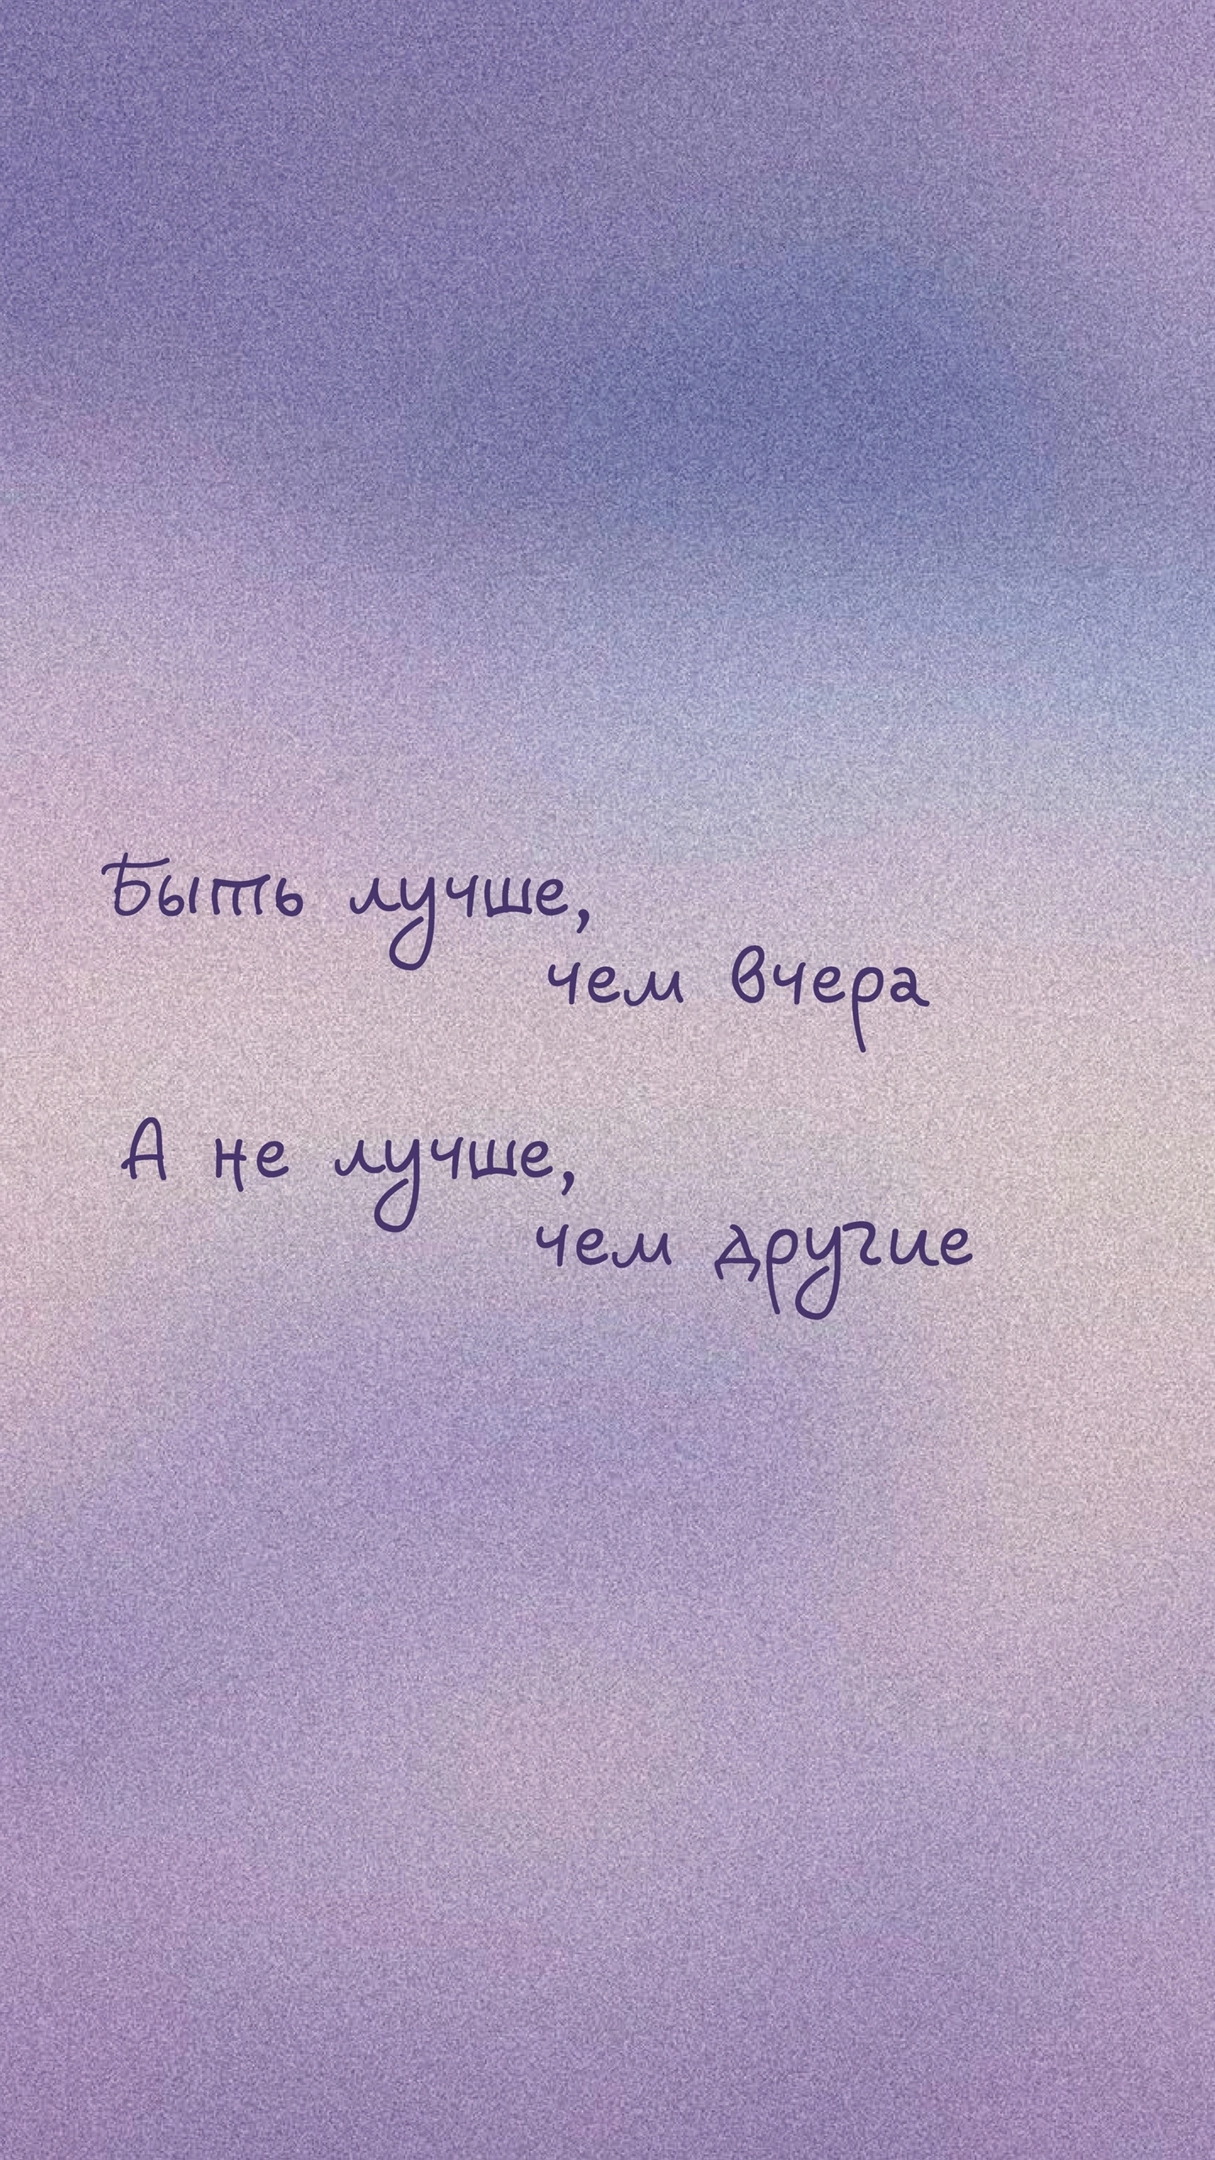 Быть лучше,
чем вчера
А не лучше,
чем другие